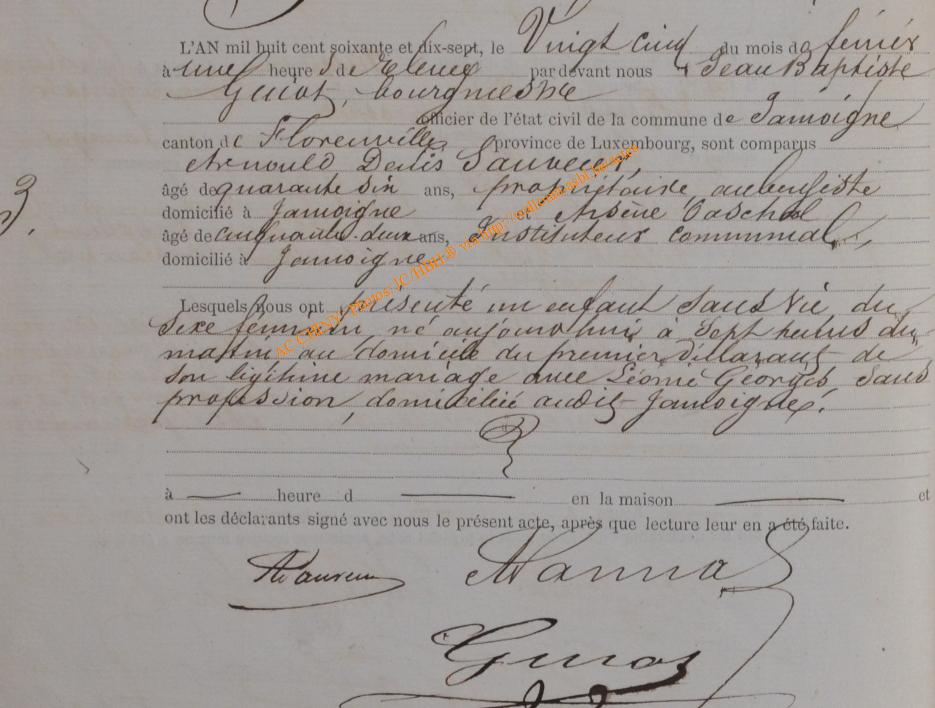 L'AN mil huit cent soixante et dix-sept, le Vingt cinq du mois de février
à une heure d de relevée par devant nous Jean Baptiste
Guiot, bourgmestre
officier de l'état civil de la commune de Jamoigne
canton de Florenville province de Luxembourg, sont comparus
Arnould Denis Sauveur,
âgé de quarante six ans, propriétaire, aubergiste
domicilié à Jamoigne et Arsène
âgé de cinquante-deux ans, Instituteur communal,
domicilié à Jamoigne
3.
Lesquels nous ont présenté un enfant Sans Vie du
Sexe féminin, né aujourd'hui à Sept heures du
matin au domicile du premier déclarant de
son légitime mariage avec Léonie Georges, Sans
profession, domiciliée audit Jamoigne.
à heure d en la maison et
ont les déclarants signé avec nous le présent acte, après que lecture leur en a été faite.
Guiot